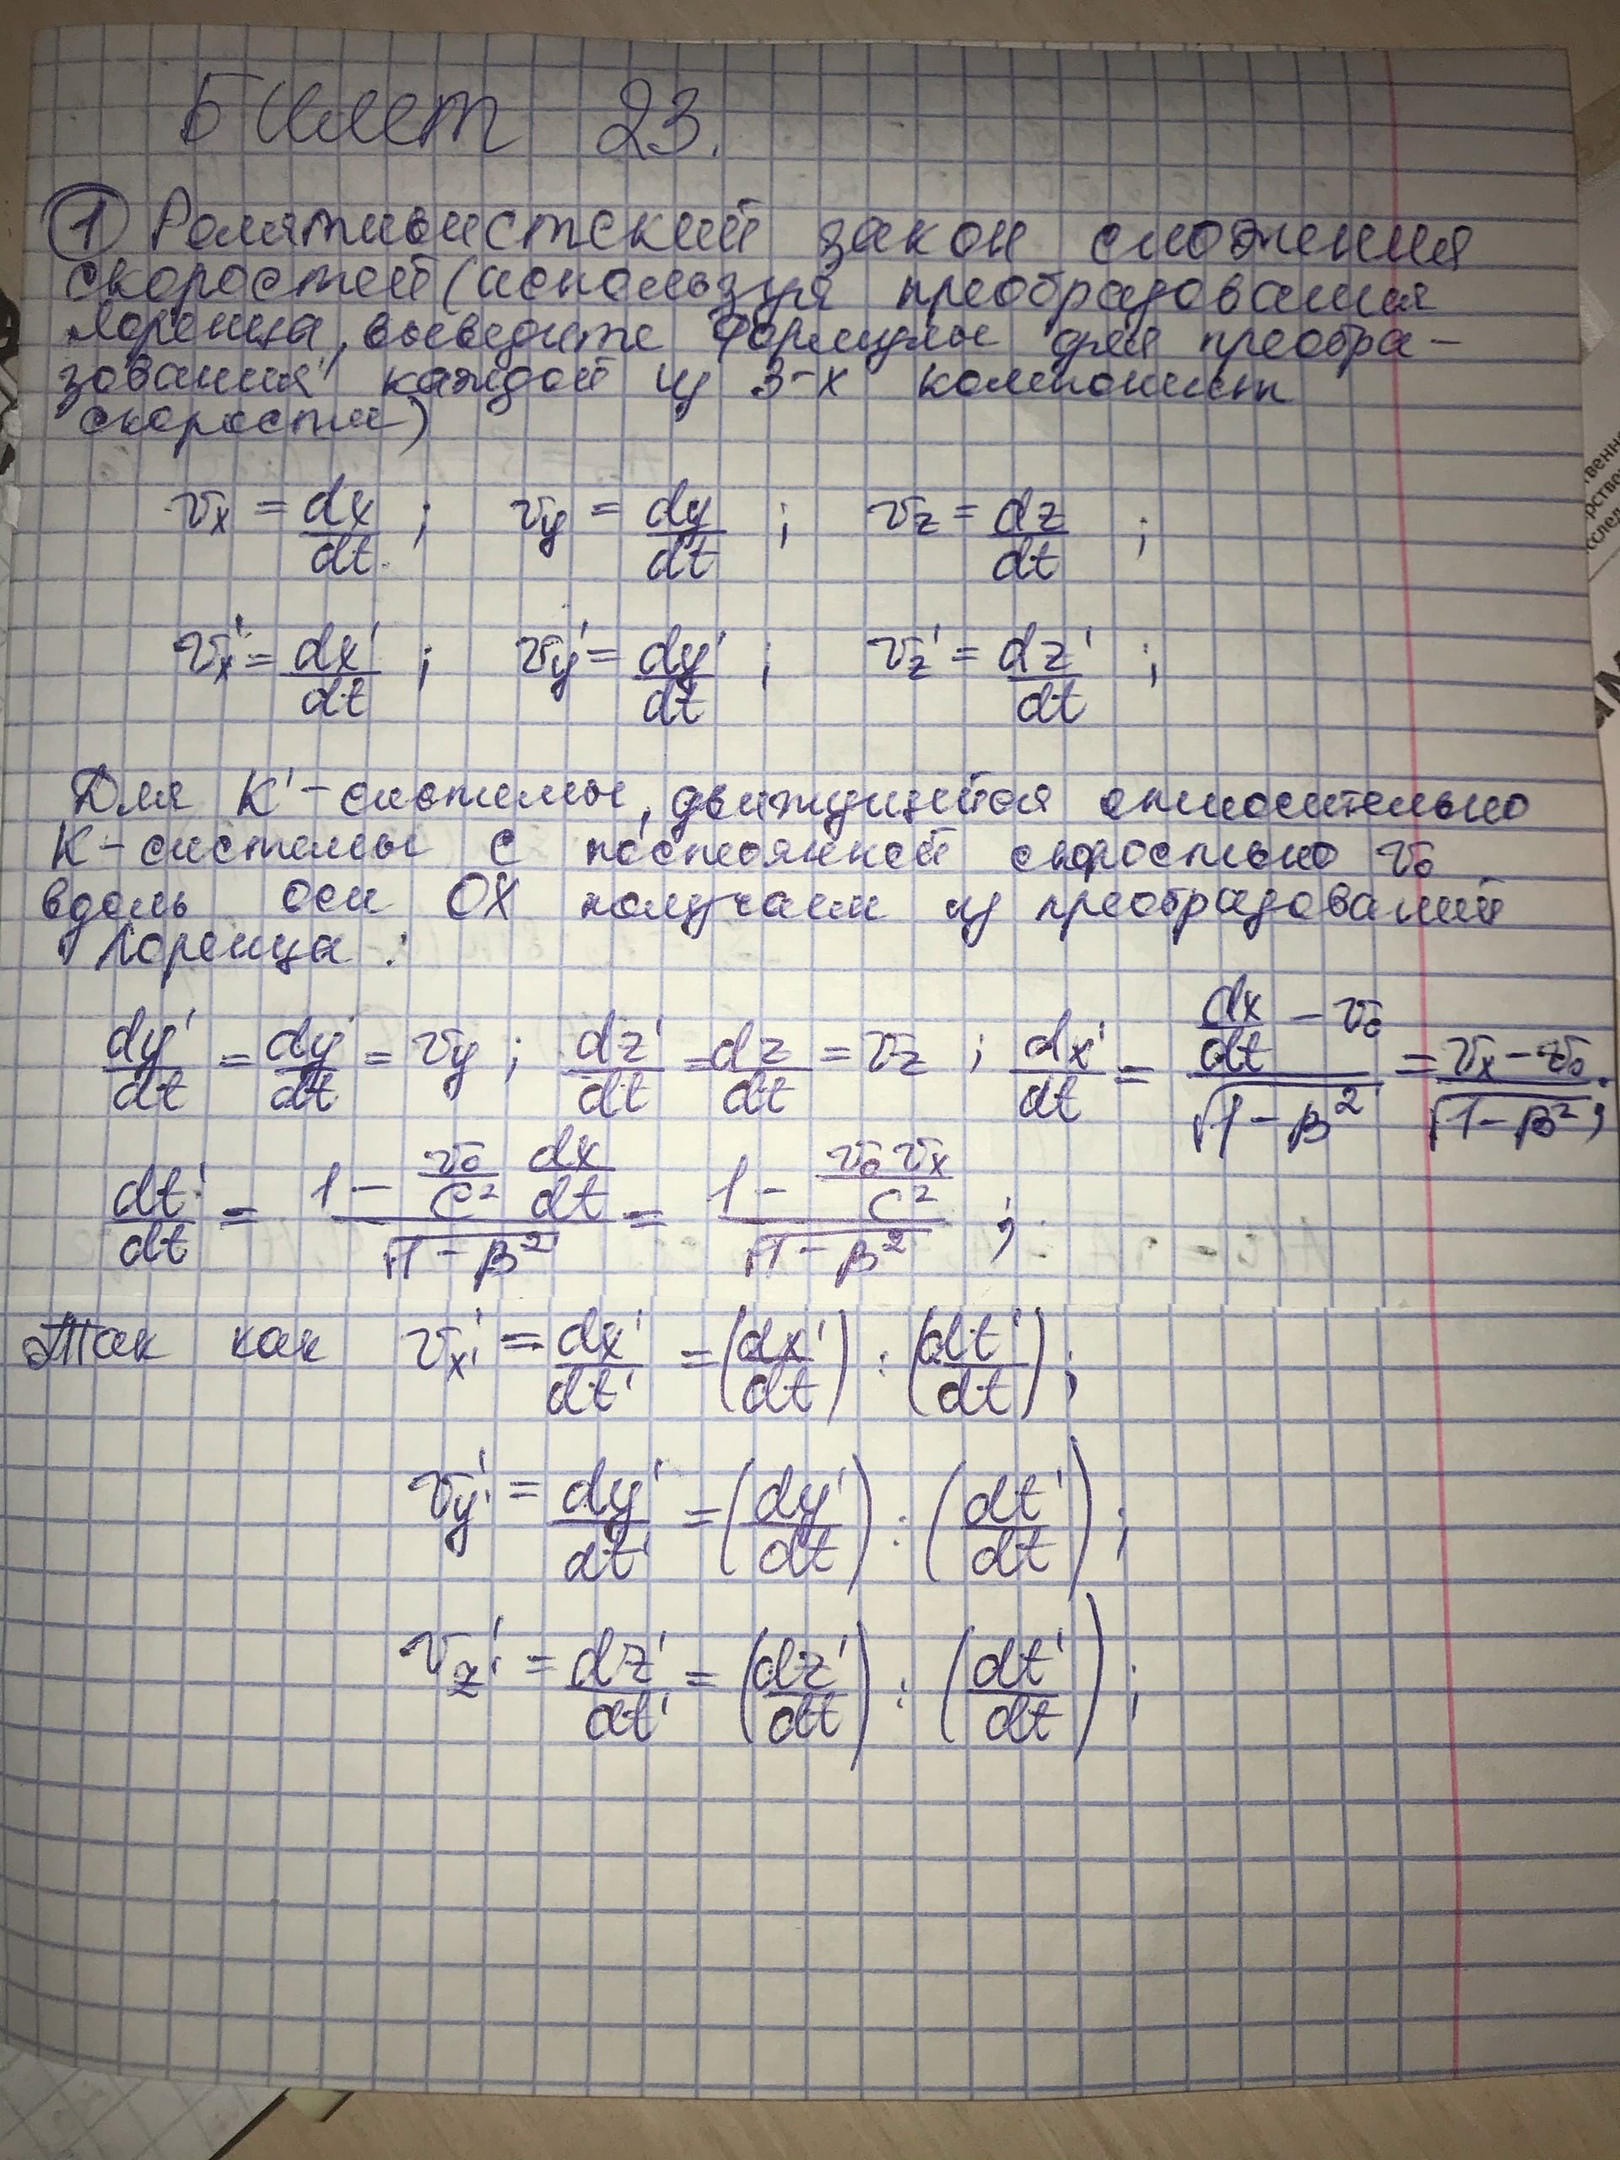 Билет 23.
① Релятивистский закон сложения
скоростей (используя преобразования
Лоренца, выведите формулы для преобра-
зования каждой из 3-х компонент
скорости)
v_x = dx/dt ; v_y = dy/dt ; v_z = dz/dt ;
v_x' = dx'/dt ; v_y' = dy'/dt ; v_z' = dz'/dt ;
Для K'-системы, движущейся относительно
K-системы с постоянной скоростью v₀
вдоль оси OX получаем из преобразований
Лоренца :
dy'/dt = dy/dt = v_y ; dz'/dt = dz/dt = v_z ; dx'/dt = (dx/dt - v₀)/√(1-β²) = (v_x - v₀)/√(1-β²) ;
dt'/dt = (1 - v₀/c² dx/dt)/√(1-β²) = (1 - v₀v_x/c²)/√(1-β²) ;
Так как v_x'' = dx'/dt' = (dx'/dt) : (dt'/dt) ;
v_y'' = dy'/dt' = (dy'/dt) : (dt'/dt) ;
v_z'' = dz'/dt' = (dz'/dt) : (dt'/dt) ;